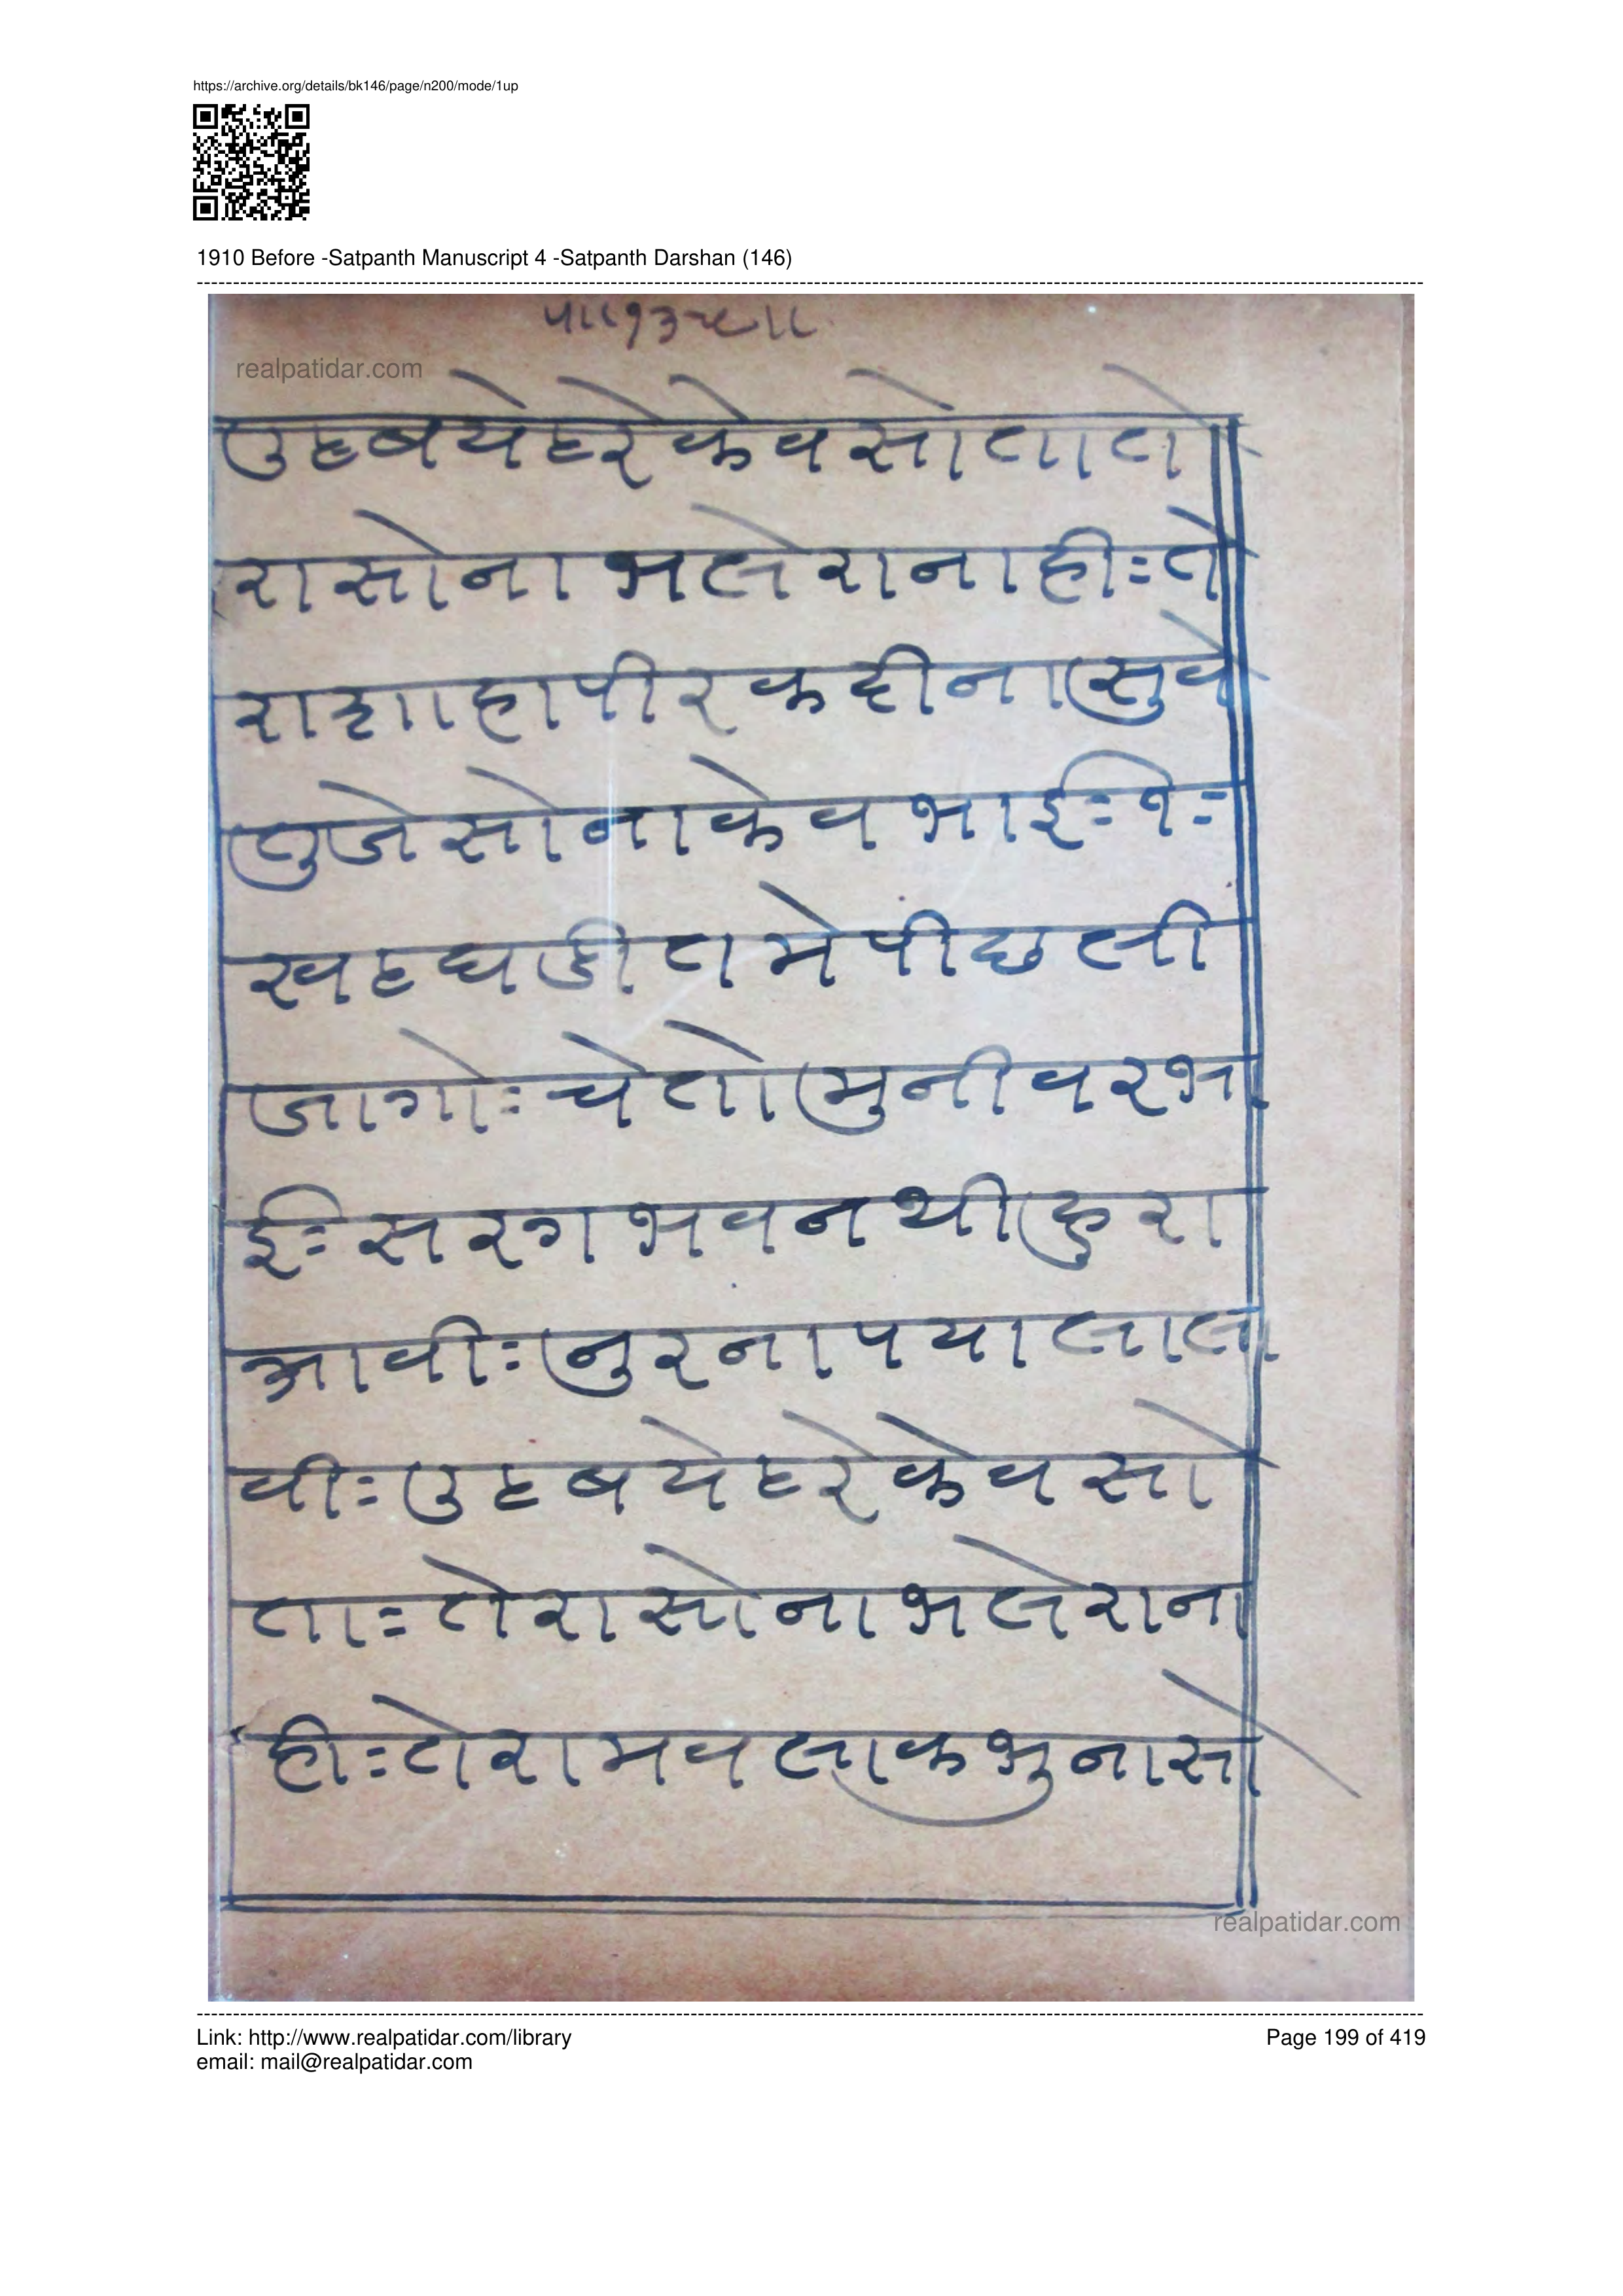 https://archive.org/details/bk146/page/n200/mode/1up
1910 Before -Satpanth Manuscript 4 -Satpanth Darshan (146)
realpatidar.com
रा सो ना भ ले रा ना ही ः ते
रा शा हा पी र क ही ना सु वे
तु जे सो ना के व भा ई ः १ ः
ख ट घ डी त मे पी छ ली
जा गो ः चे तो मु नी व र भा
ई ः स र ग भ व न थी हु रा
आ वी ः नु र ना प या ला ला
वी ः उ ह ब ये ह रे के व सो
ता ः ते रा सो ना भ ले रा ना
ही ः ते रा म व ला क भु ना सो
realpatidar.com
Link: http://www.realpatidar.com/library
Page 199 of 419
email: mail@realpatidar.com